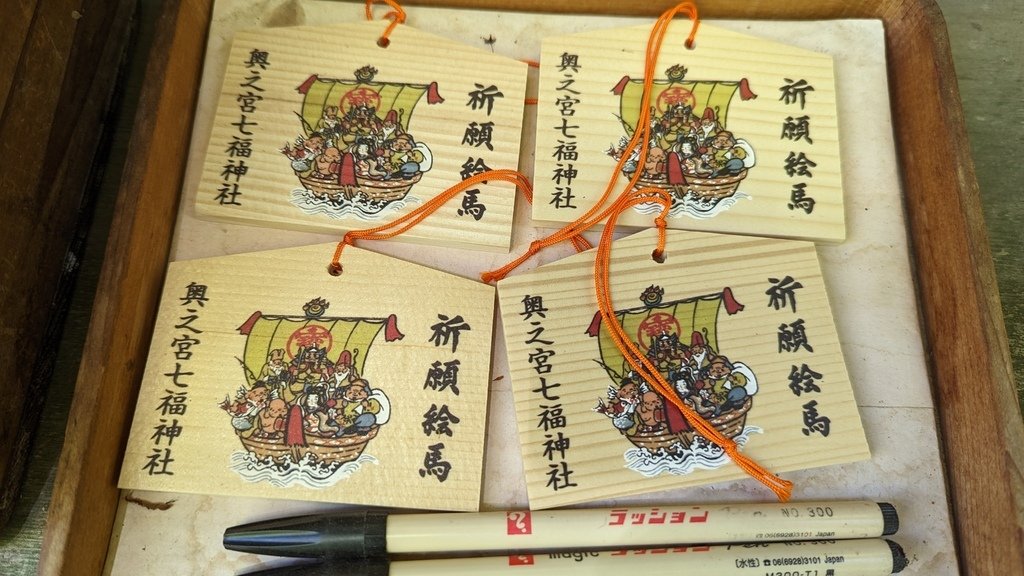 奥之宮七福神社
祈願絵馬
奥之宮七福神社
祈願絵馬
奥之宮七福神社
祈願絵馬
奥之宮七福神社
祈願絵馬
ラッション NO.300
☎06(6928)3101 Japan
magic ラッション
〔水性〕☎06(6928)3101 Japan
M300-T1 黒